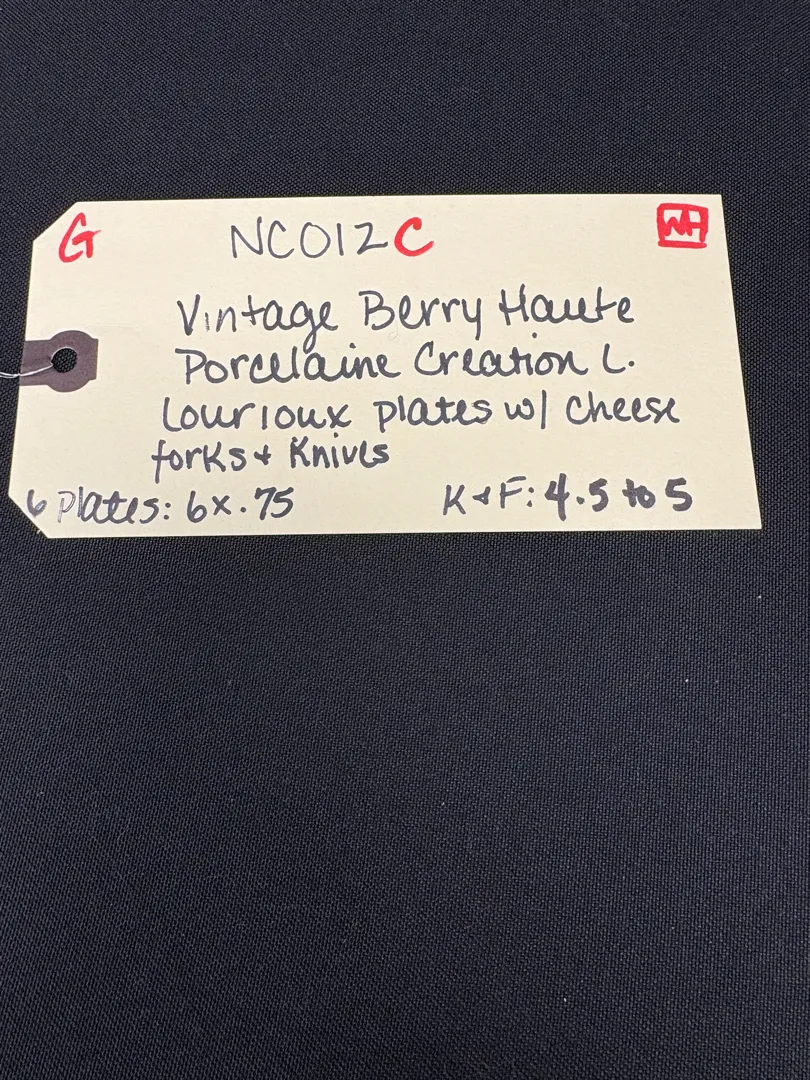 G NC012C WH
Vintage Berry Haute
Porcelaine Creation L.
Lourioux plates w/ cheese
forks & Knives
6 Plates: 6x.75 K&F: 4.5 to 5